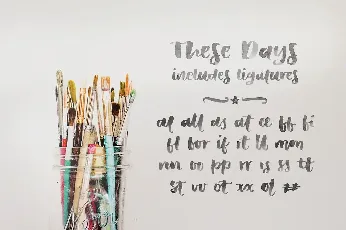 These Days
includes ligatures
al all as at ee ff fi
fl for if it ll mon
nn oo pp rr is ss tt
st vv ot xx of zz